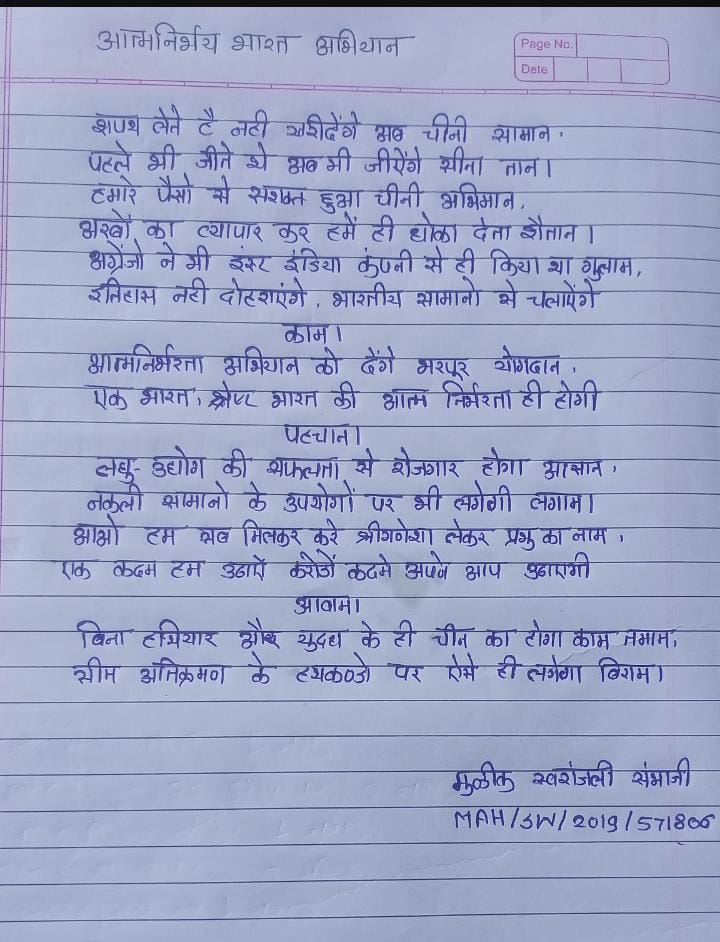 आत्मनिर्भय भारत अभियान
Page No.
Date
शपथ लेते है नही खरीदेंगे अब चीनी सामान,
पहले भी जीते थे अब भी जीऐंगे सीना तान।
हमारे पैसो से सशक्त हुआ चीनी अभिमान,
अरबों का व्यापार कर हमें ही धोका देता शैतान।
अंग्रेजो ने भी इस्ट इंडिया कंपनी से ही किया था गुलाम,
इतिहास नही दोहराएंगे, भारतीय सामानो से चलाऐंगे
काम।
आत्मनिर्भरता अभियान को देंगे भरपूर योगदान,
एक भारत, श्रेष्ट भारत की आत्म निर्भरता ही होगी
पहचान।
लघु-उद्योग की सफलता से रोजगार होगा आसान,
नकली सामानो के उपयोगों पर भी लगेगी लगाम।
आओ हम सब मिलकर करे श्रीगणेशा लेकर प्रभु का नाम,
एक कदम हम उठाऐं करोडों कदमे अपने आप उठाएगी
आवाम।
बिना हथियार और युदध के ही चीन का होगा काम तमाम,
सीम अतिक्रमण के हथकण्डो पर ऐसे ही लगेगा विराम।
मुळीक स्वरांजली संभाजी
MAH/SW/2019/571806